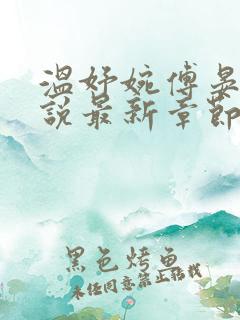 温妤婉傅晏
说最新章节
黑色烤鱼
未经同意禁止转载